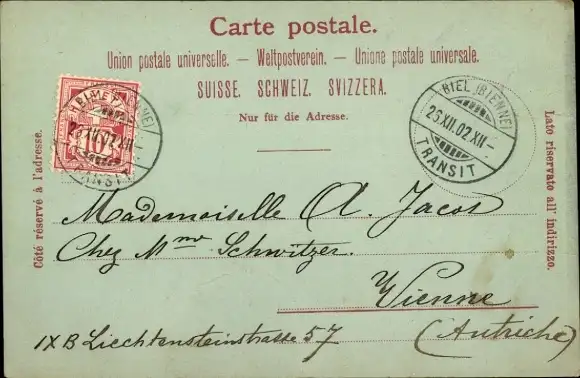 Carte postale.
Union postale universelle. — Weltpostverein. — Unione postale universale.
SUISSE. SCHWEIZ. SVIZZERA.
Nur für die Adresse.
Côté réservé à l'adresse.
Lato riservato all' indirizzo.
10
BIEL (BIENNE)
26.XII.02.XII-
TRANSIT
Mademoiselle A. Jacot
Chez Mme Schwitzer.
Vienne
IX B Liechtensteinstrasse 57 (Autriche)